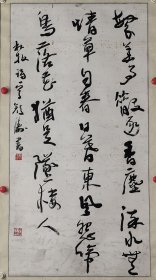 繁華事散逐香塵流水無
情草自春日暮東風怨啼
鳥落花猶是墜樓人
杜牧詩